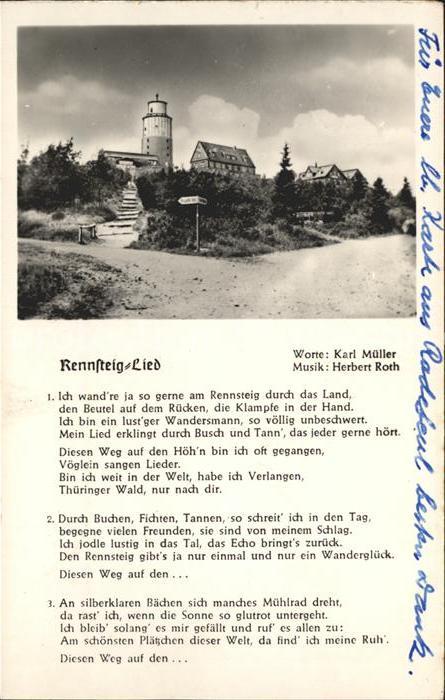 Rennsteig=Lied
Worte: Karl Müller
Musik: Herbert Roth
1. Ich wand're ja so gerne am Rennsteig durch das Land,
den Beutel auf dem Rücken, die Klampfe in der Hand.
Ich bin ein lust'ger Wandersmann, so völlig unbeschwert.
Mein Lied erklingt durch Busch und Tann', das jeder gerne hört.
Diesen Weg auf den Höh'n bin ich oft gegangen,
Vöglein sangen Lieder.
Bin ich weit in der Welt, habe ich Verlangen,
Thüringer Wald, nur nach dir.
2. Durch Buchen, Fichten, Tannen, so schreit' ich in den Tag,
begegne vielen Freunden, sie sind von meinem Schlag.
Ich jodle lustig in das Tal, das Echo bringt's zurück.
Den Rennsteig gibt's ja nur einmal und nur ein Wanderglück.
Diesen Weg auf den ...
3. An silberklaren Bächen sich manches Mühlrad dreht,
da rast' ich, wenn die Sonne so glutrot untergeht.
Ich bleib' solang' es mir gefällt und ruf' es allen zu:
Am schönsten Plätzchen dieser Welt, da find' ich meine Ruh'.
Diesen Weg auf den ...
Für Euere lb. Karte aus Radebeul besten Dank.